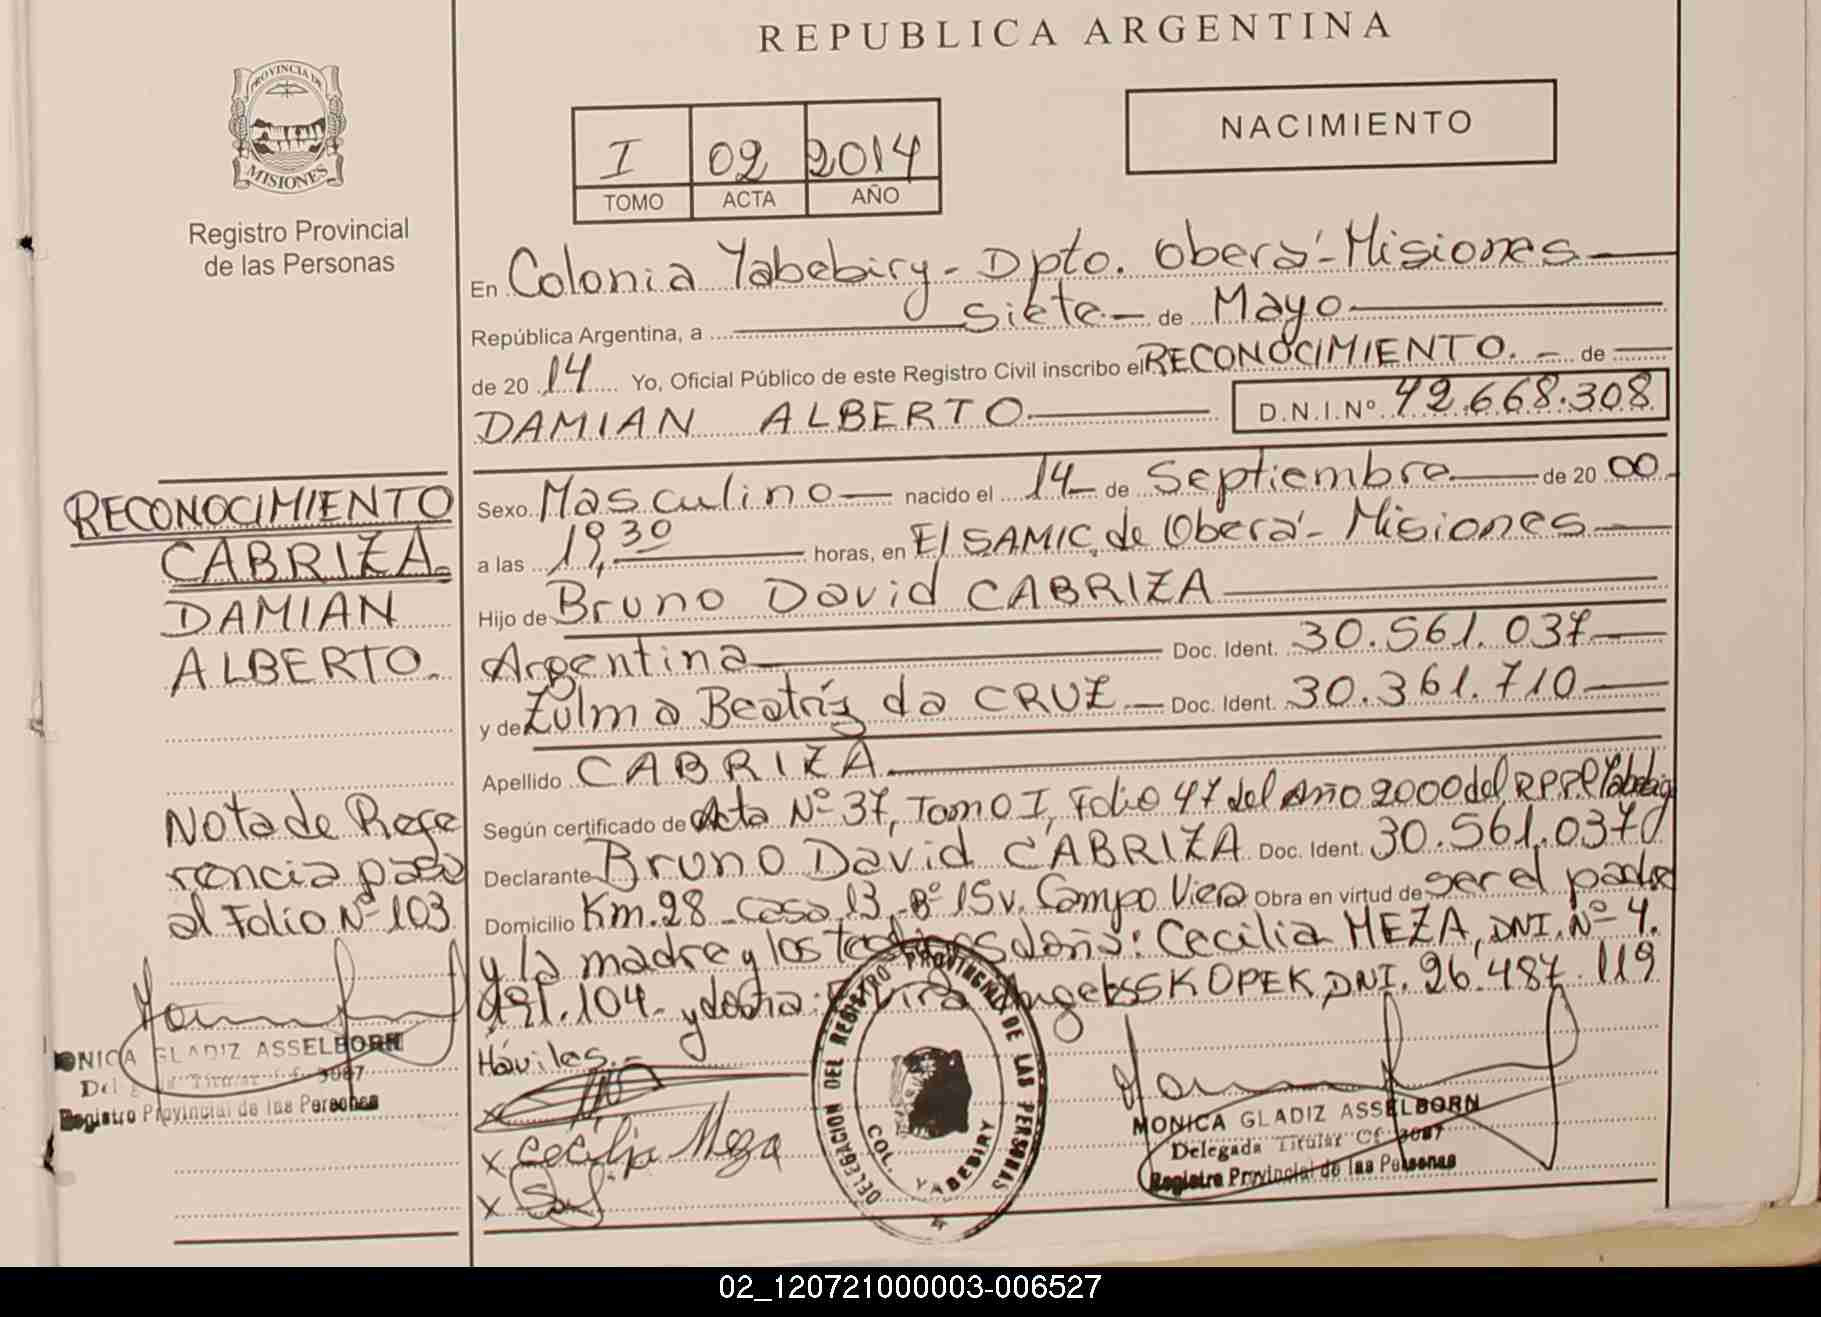 REPUBLICA ARGENTINA
PROVINCIA DE
MISIONES
Registro Provincial
de las Personas
I 02 2014
TOMO ACTA AÑO
NACIMIENTO
En Colonia Yabebiry - Dpto. Oberá - Misiones
República Argentina, a siete de Mayo
de 20 14 Yo, Oficial Público de este Registro Civil inscribo el RECONOCIMIENTO. - de
DAMIAN ALBERTO D.N.I.Nº 42.668.308
Sexo Masculino nacido el 14 de Septiembre de 20 00
a las 19,30 horas, en El SAMIC. de Oberá - Misiones
Hijo de Bruno David CABRIZA
Argentina Doc. Ident. 30.561.037
y de Zulma Beatríz da CRUZ Doc. Ident. 30.361.710
Apellido CABRIZA
Según certificado de Acta Nº 37, Tomo I, Folio 47 del Año 2000 del R.P.P. Yabebiry
Declarante Bruno David CABRIZA Doc. Ident. 30.561.037
Domicilio Km. 28 - casa 13, - Bº 15v. Campo Viera Obra en virtud de ser el padre
y la madre y los testigos doña: Cecilia MEZA, DNI. Nº 4.
991.104 - y doña: Elvira Angela SSKOPEK, DNI. 26.487.119
Háviles. -
x
x Cecilia Meza
x
DELEGACION DEL REGISTRO PROVINCIAL DE LAS PERSONAS
COL. YABEBIRY
MONICA GLADIZ ASSELBORN
Delegada Titular Cf. 3087
Registro Provincial de las Personas
RECONOCIMIENTO
CABRIZA.
DAMIAN
ALBERTO.
Nota de Refe
rencia pasa
al Folio Nº 103
MONICA GLADIZ ASSELBORN
Titular Cf. 3087
Registro Provincial de las Personas
02_120721000003-006527